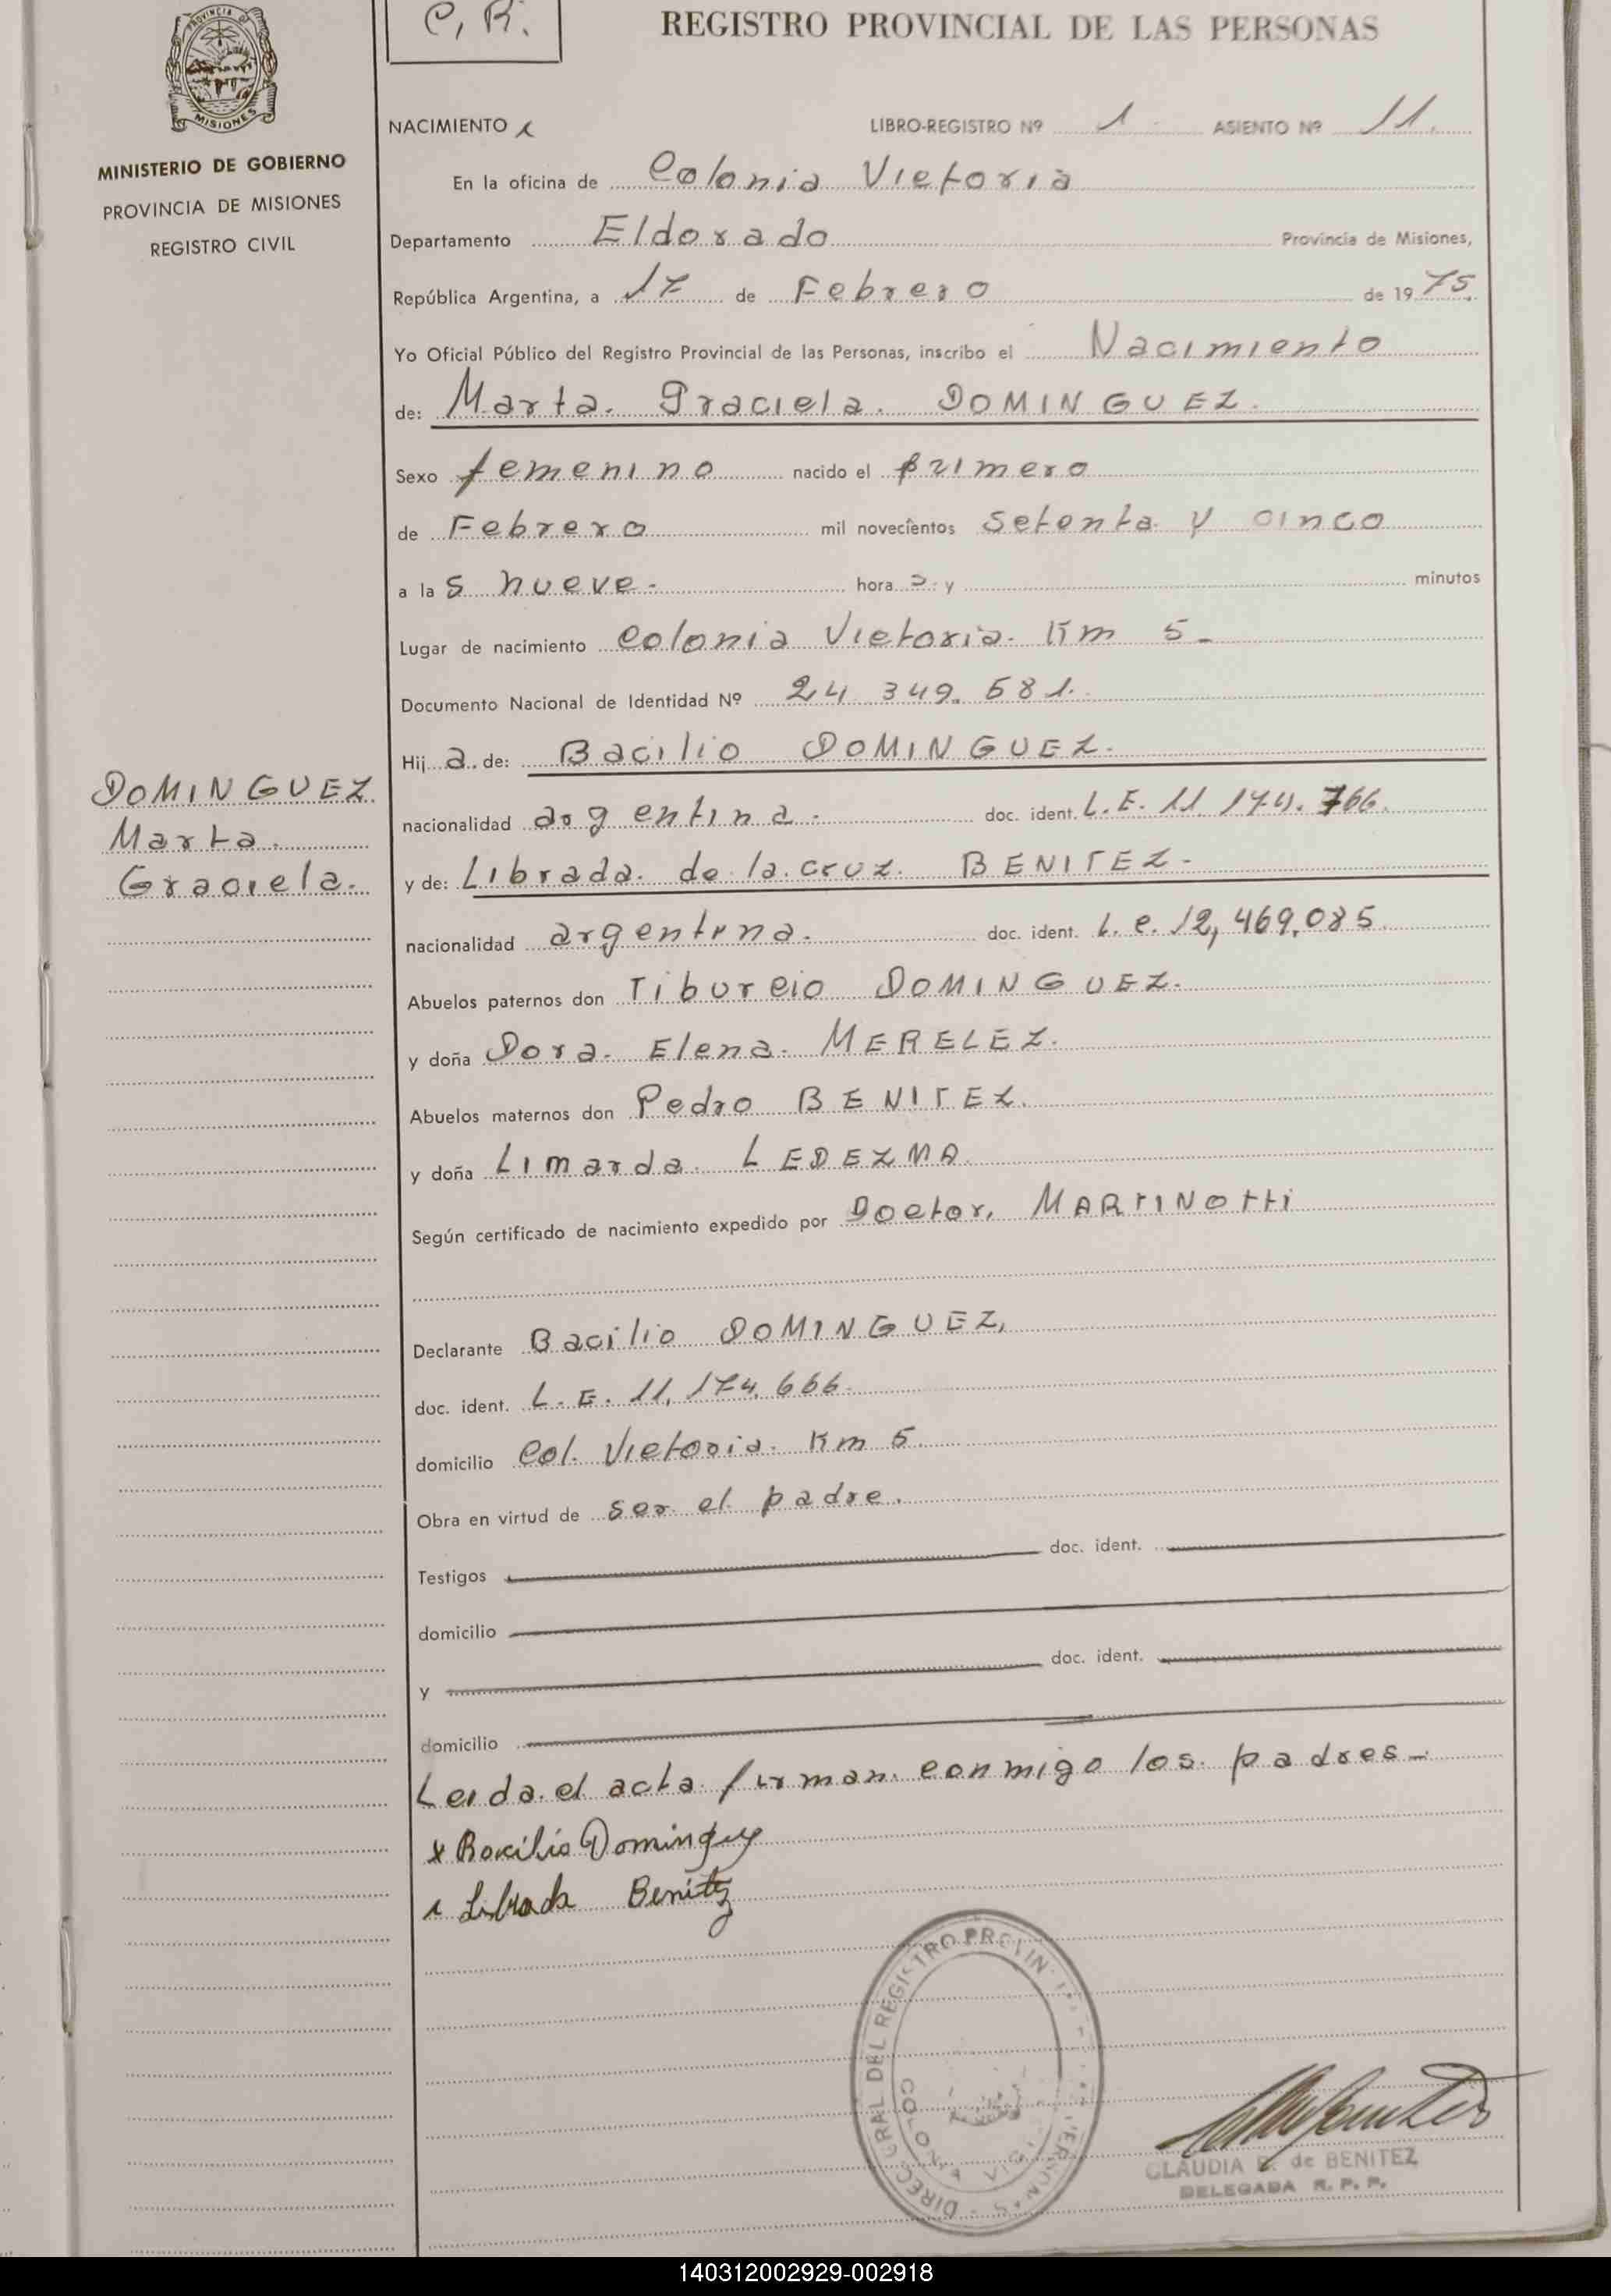 C, R.
REGISTRO PROVINCIAL DE LAS PERSONAS
PROVINCIA DE
MISIONES
MINISTERIO DE GOBIERNO
PROVINCIA DE MISIONES
REGISTRO CIVIL
NACIMIENTO x LIBRO-REGISTRO Nº 1 - ASIENTO Nº 11.
En la oficina de Colonia Victoria
Departamento Eldorado Provincia de Misiones,
República Argentina, a 17 de Febrero de 1975.
Yo Oficial Público del Registro Provincial de las Personas, inscribo el Nacimiento
de: Marta. Graciela. DOMINGUEZ.
Sexo femenino nacido el primero
de Febrero mil novecientos setenta y cinco
a las nueve - hora s. y minutos
Lugar de nacimiento Colonia Victoria. Km 5 -
Documento Nacional de Identidad Nº 24 349. 681.
Hija de: Bacilio DOMINGUEZ.
nacionalidad argentina. doc. ident. L. E. 11. 174. 766.
y de: Librada. de la. cruz. BENITEZ -
nacionalidad argentina. doc. ident. L. e. 12, 469,085.
Abuelos paternos don Tiburcio DOMINGUEZ.
y doña Dora. Elena. MERELEZ.
Abuelos maternos don Pedro BENITEZ.
y doña Limarda. LEDEZMA.
Según certificado de nacimiento expedido por Doctor. MARTINOttI
Declarante Bacilio DOMINGUEZ,
doc. ident. L. E. 11, 174, 666.
domicilio Col. Victoria. Km 5.
Obra en virtud de ser el padre.
Testigos doc. ident.
domicilio
y doc. ident.
domicilio
Leida. el acta. firman. conmigo los. padres -.
x Bacilio Dominguez
x Librada Benitez
DOMINGUEZ
Marta.
Graciela.
DIREC RAL DEL REGISTRO PROVIN
CLAUDIA de BENITEZ
DELEGADA R. P. P.
140312002929-002918